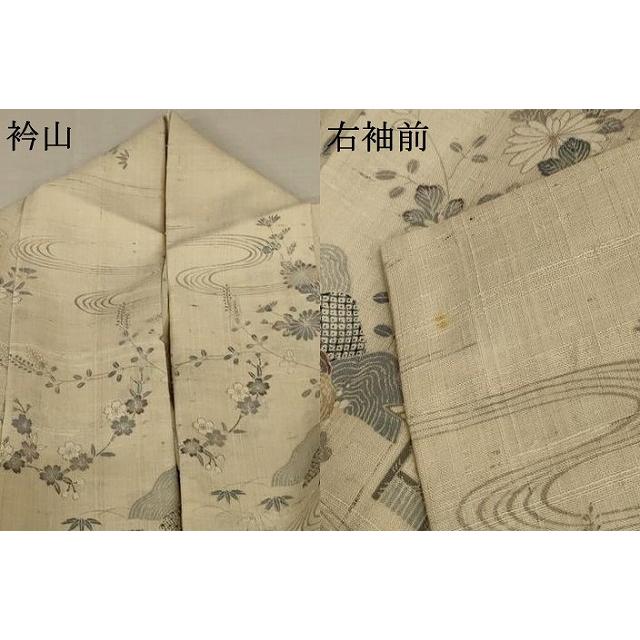 衿山
右袖前